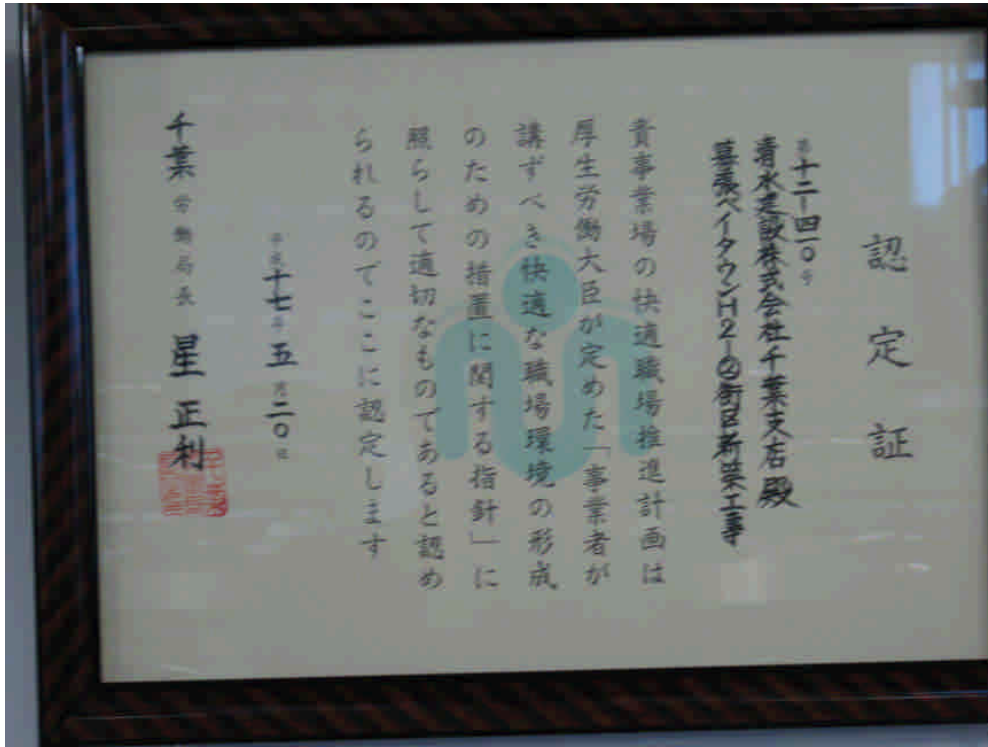 認定証
第十二-四一〇号
清水建設株式会社千葉支店殿
幕張ベイタウンH2-②街区新築工事
貴事業場の快適職場推進計画は
厚生労働大臣が定めた「事業者が
講ずべき快適な職場環境の形成
のための措置に関する指針」に
照らして適切なものであると認め
られるのでここに認定します
平成十七年五月二〇日
千葉労働局長 星正利